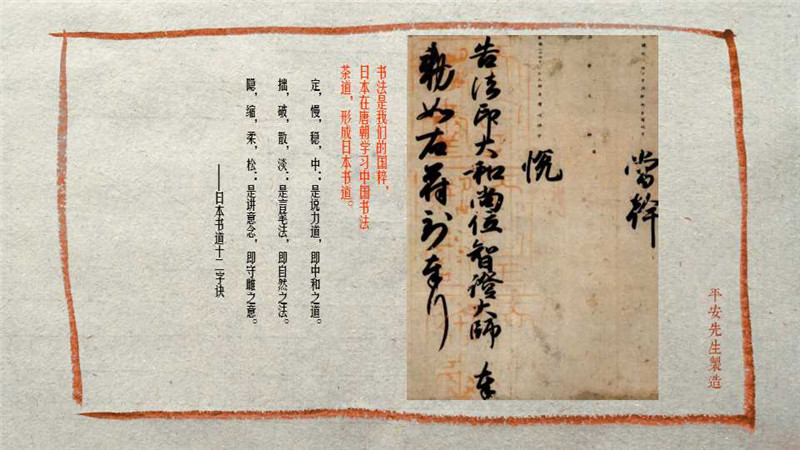 平安先生製造
當幹
悦
告法印大和尚位智證大師 奉
勅如右符到奉行
书法是我们的国粹，
日本在唐朝学习中国书法
茶道，形成日本书道。
定，慢，稳，中：是说力道，即中和之道。
拙，破，散，淡：是言笔法，即自然之法。
隐，缩，柔，松：是讲意念，即守雌之意。
——日本书道十二字诀